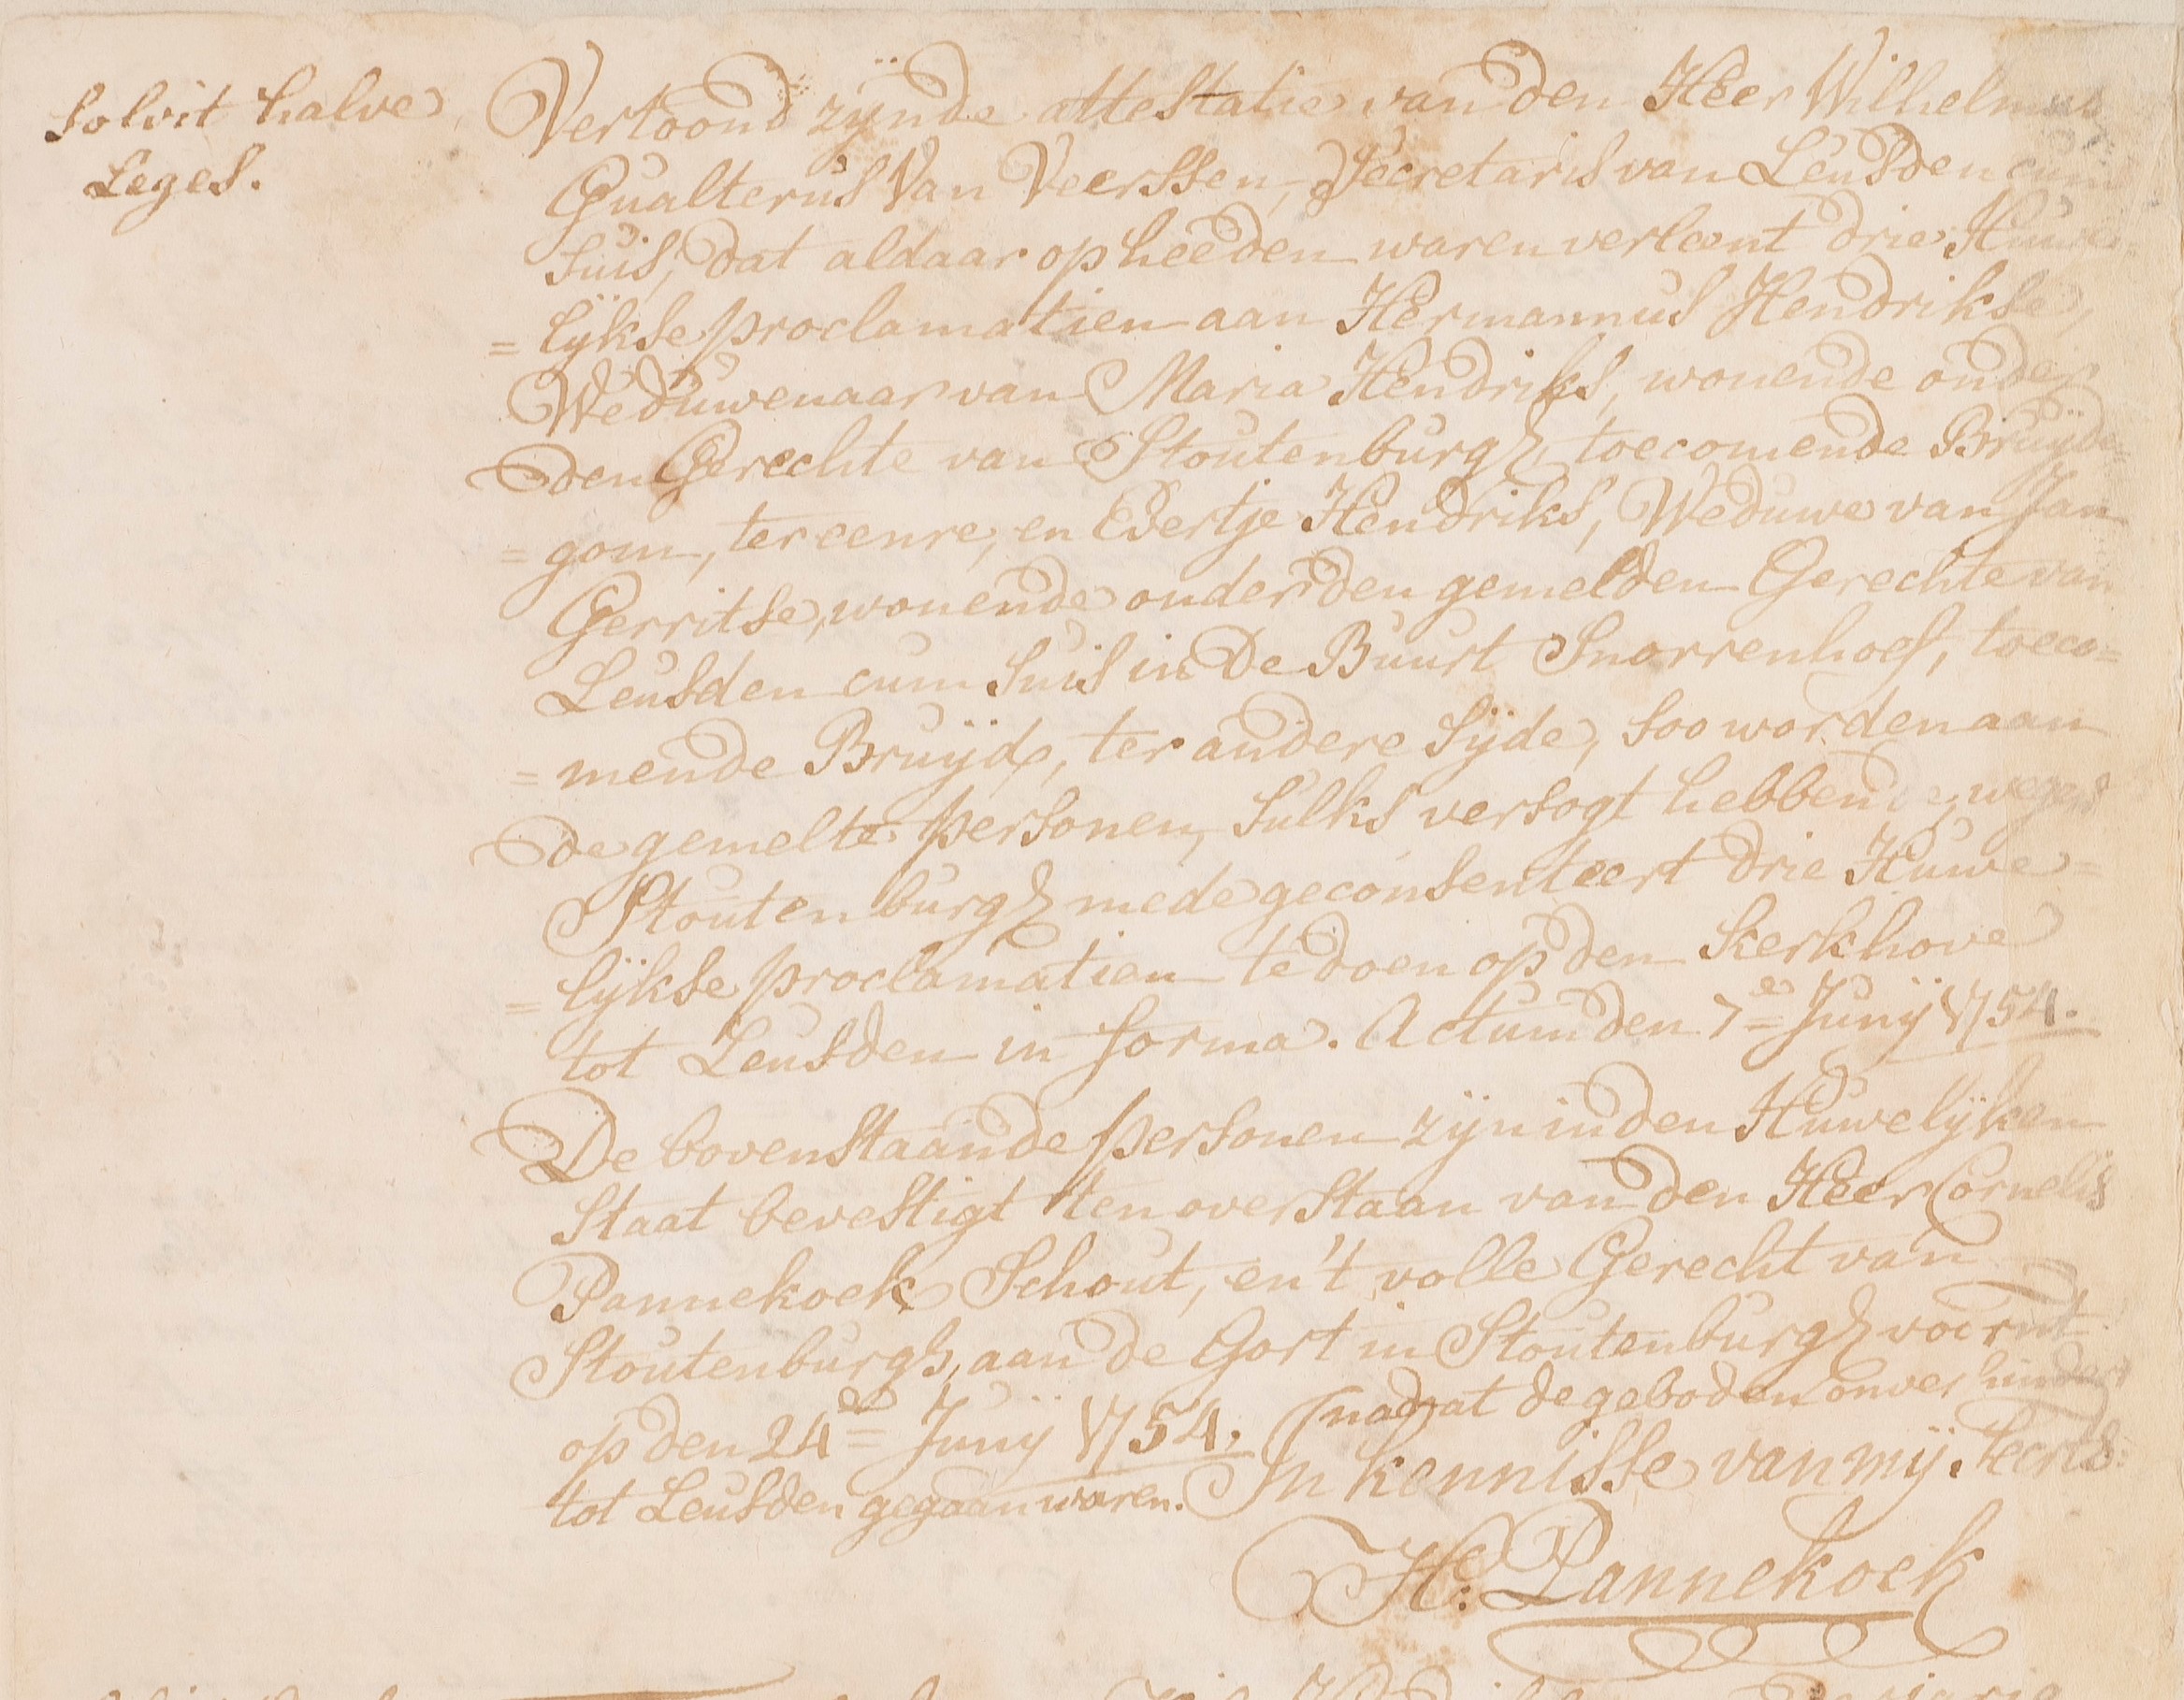 Solvit halve
Leges.
Vertoond zÿnde attestatie van den Heer Wilhelmus
Gualterus Van Veerssen, Secretaris van Leusden cum
suis, dat aldaar op heeden waren verleent drie Huwe
=lÿkse proclamatien aan Hermannus Hendrikse,
Weduwenaar van Maria Hendriks, wonende onder
den Gerechte van Stoutenburgh, toecomende Bruÿde=
=gom, ter eenre, en Evertje Hendriks, Weduwe van Jan
Gerritse, wonende onder den gemelden Gerechte van
Leusden cum suis in De Buurt Snorrenhoef, toeco=
=mende Bruÿd, ter andere sÿde, soo worden aan
de gemelte personen, sulks versogt hebbende, weges
Stoutenburgh mede geconsenteert drie Huwe=
=lÿkse proclamatien te doen op den Kerkhove
tot Leusden in forma. Actum den 7=e Junÿ 1754.
De bovenstaande personen zÿn in den Huwelÿken
staat bevestigt ten overstaan van den Heer Cornelis
Pannekoek Schout, en 't volle Gerecht van
Stoutenburgh, aan de Gort in Stoutenburgh voornt
op den 24=e Junÿ 1754, nadat de geboden onverhindert
tot Leusden gegaan waren. In kennisse van mÿ Secrts:
H: Pannekoek